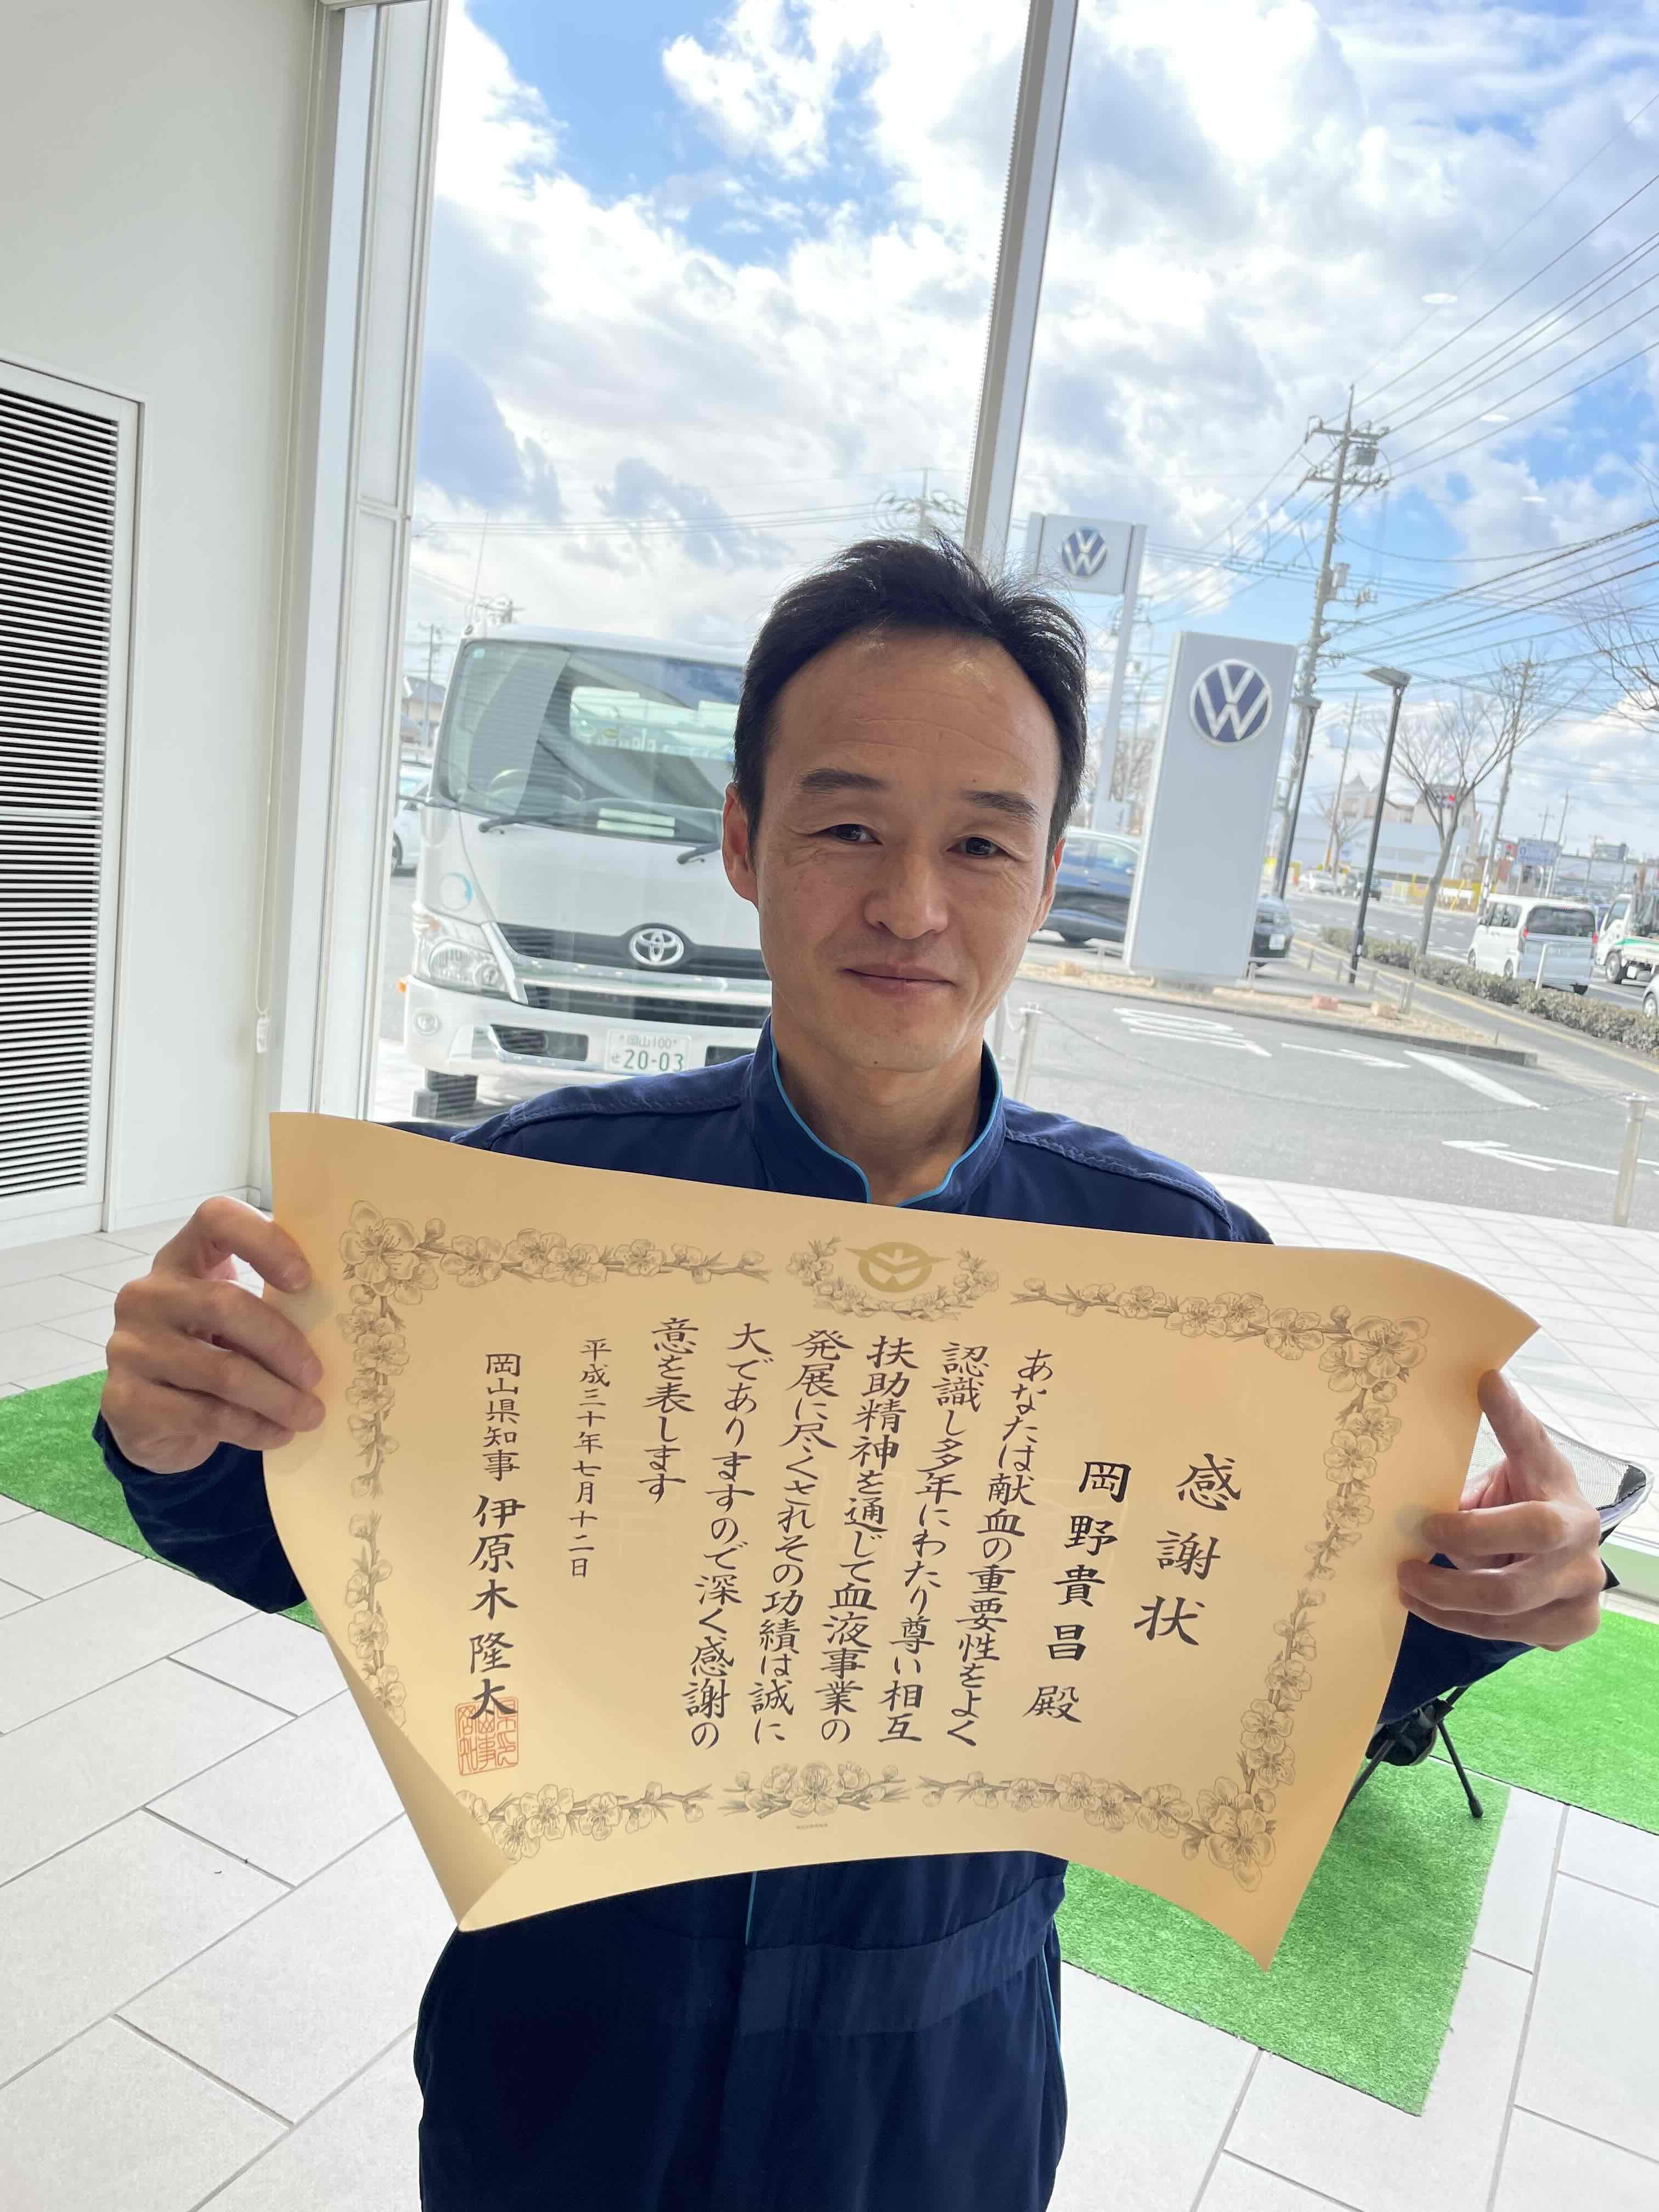 感謝状
岡野貴昌 殿
あなたは献血の重要性をよく
認識し多年にわたり尊い相互
扶助精神を通じて血液事業の
発展に尽くされその功績は誠に
大でありますので深く感謝の
意を表します
平成三十年七月十二日
岡山県知事 伊原木隆太
岡山100
せ 20-03